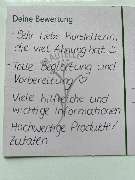 Deine Bewertung
- Sehr liebe Kursleiterin,
die viel Ahnung hat ☺
- Tolle Begleitung und
Vorbereitung ♡
- Viele hilfreiche und
wichtige Informationen
- Hochwertige Produkte/
Zutaten